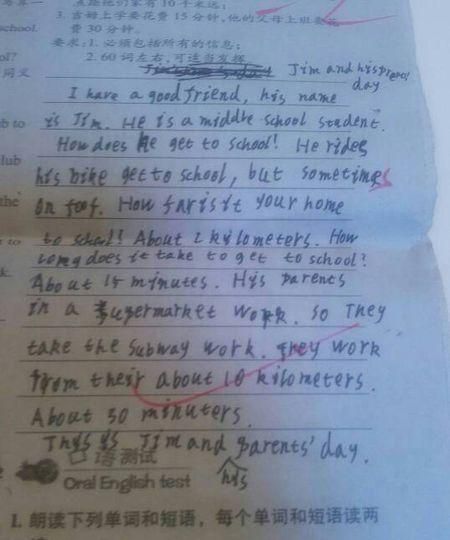 点距他们家有10千米远;
school.
3. 吉姆上学要花费15分钟,他的父母上班要花
费30分钟。
ol?
要求:1. 必须包括所有的信息;
2. 60词左右,可适当发挥
同义
Jim and his
day
I have a good friend, his name
b to
is Jim. He is a middle school student.
How does he get to school! He rides
lub
his bike get to school, but sometimes
the
on foot. How far is it your home
to
to school! About 2 kilometers. How
long does it take to get to school?
k.
About 15 minutes. His parents
in a supermarket work. so They
take the subway work. They work
from their about 10 kilometers.
About 30 minuters.
Thys is Jim and parents' day.
his
口语测试
Oral English test
I. 朗读下列单词和短语,每个单词和短语读两